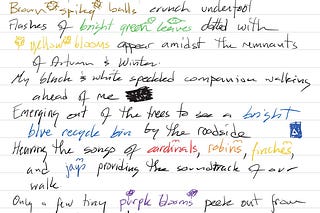 Brown spikey balls crunch underfoot
Flashes of bright green leaves dotted with
yellow blooms appear amidst the remnants
of Autumn & Winter.
My black & white speckled companion walking
ahead of me
Emerging out of the trees to see a bright
blue recycle bin by the roadside
Hearing the songs of cardinals, robins, finches,
and jays providing the soundtrack of our
walk
Only a few tiny purple blooms peek out from